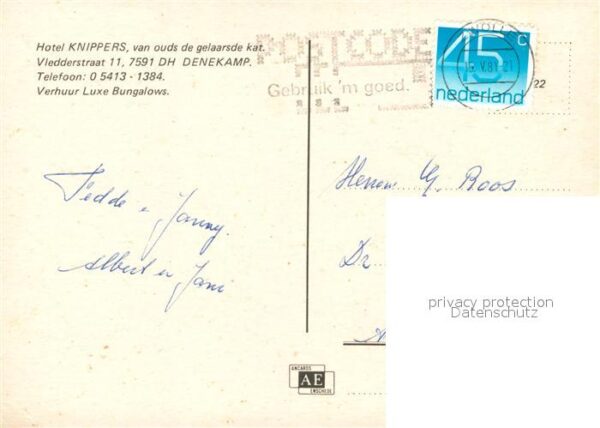 Hotel KNIPPERS, van ouds de gelaarsde kat.
Vledderstraat 11, 7591 DH DENEKAMP.
Telefoon: 0 5413 - 1384.
Verhuur Luxe Bungalows.
POSTCODE
Gebruik 'm goed.
45 C
nederland
22
Jedde e Janny.
Albert en Jani
G. Roos
Dr
privacy protection
Datenschutz
ANCARDS
AE
ENSCHEDE